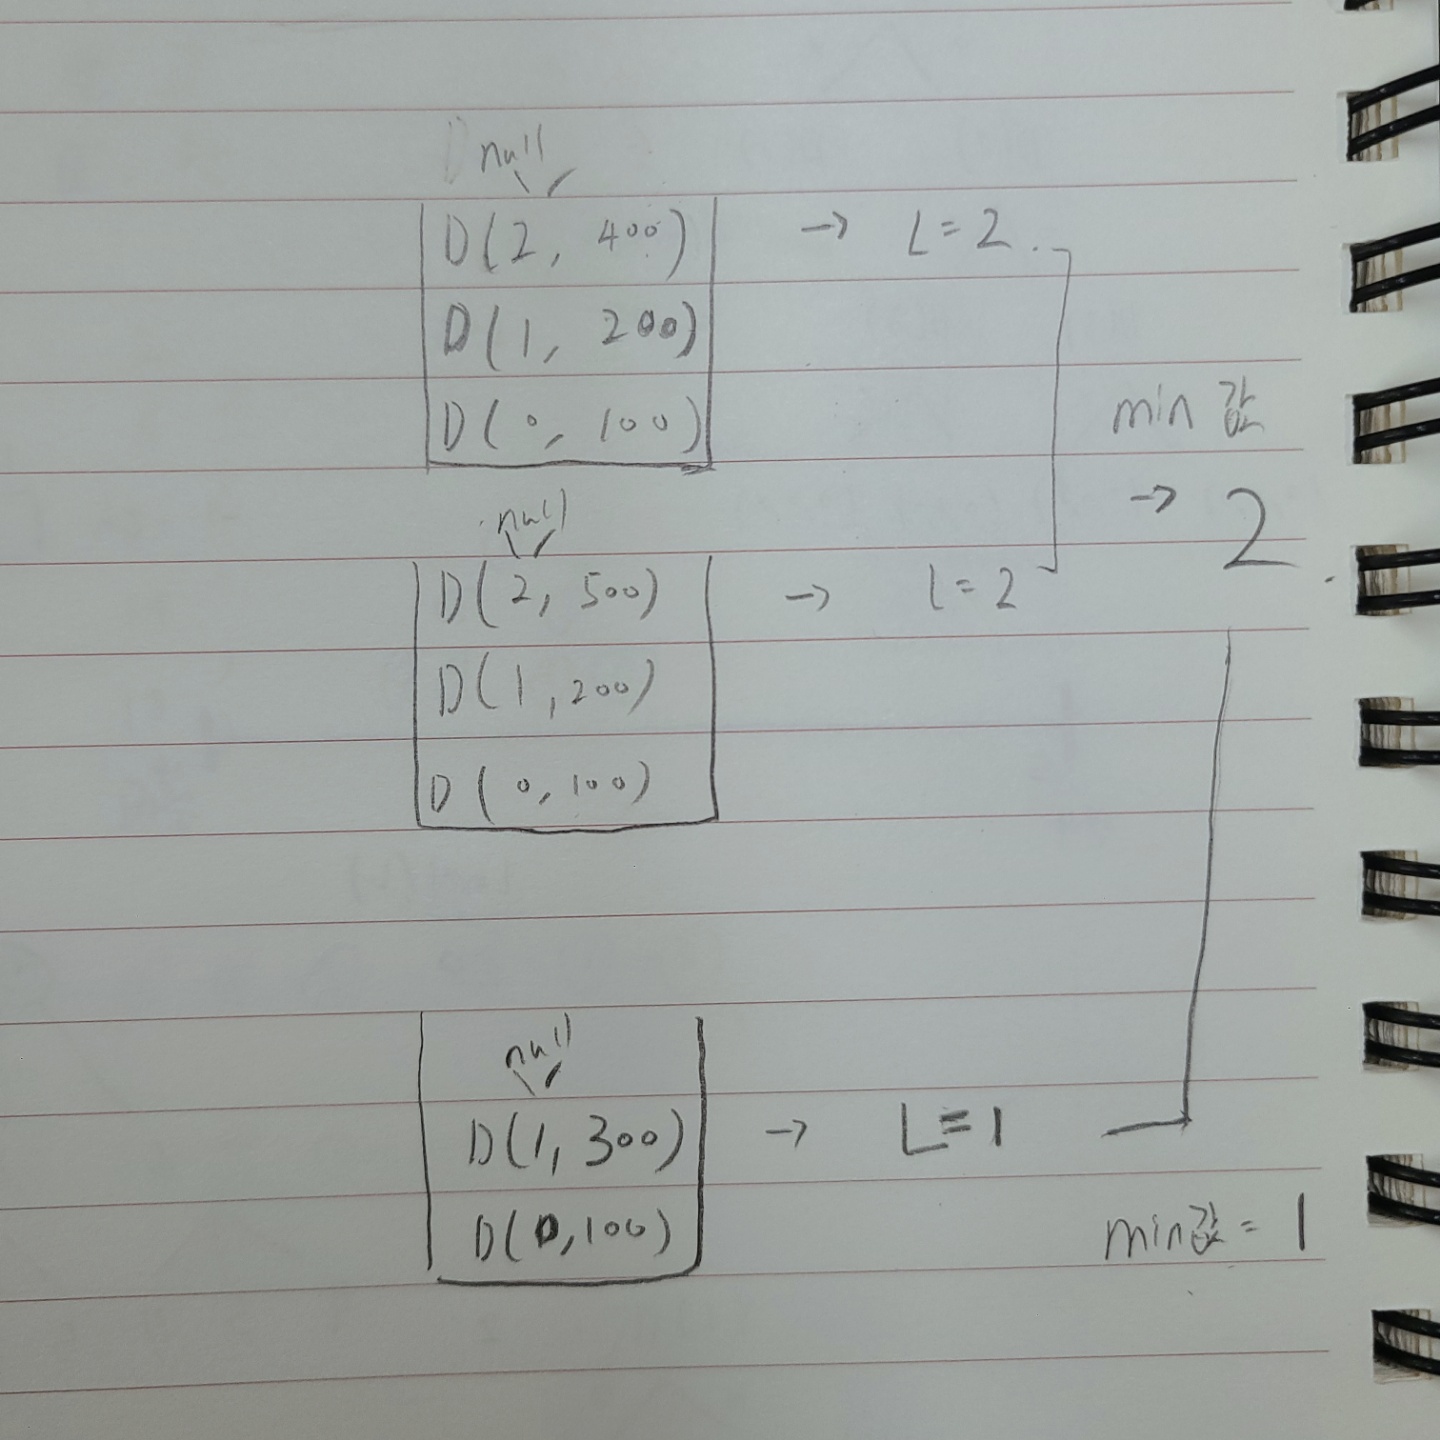 null
D(2, 400) → L=2.
D(1, 200)
D(0, 100)
min값
→ 2
null
D(2, 500) → L=2
D(1, 200)
D(0, 100)
null
D(1, 300) → L=1
D(0, 100)
min값 = 1